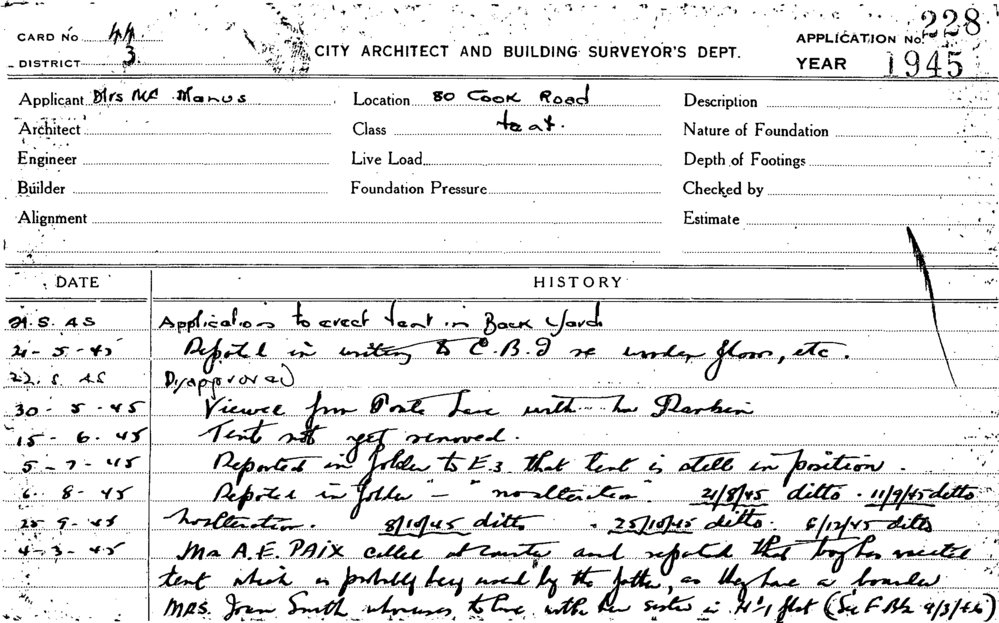 CARD No 44.
DISTRICT 3
CITY ARCHITECT AND BUILDING SURVEYOR'S DEPT.
APPLICATION No. 228
YEAR 1945
Applicant Mrs Mc Manus Location 80 Cook Road Description
Architect Class tent. Nature of Foundation
Engineer Live Load Depth of Footings
Builder Foundation Pressure Checked by
Alignment Estimate
DATE HISTORY
21.5.45 Applications to erect tent in Back Yard
21-5-45 Reported in writing to C.B.I re wooden floor, etc.
22.5.45 Disapproved
30-5-45 Viewed from Lane with
15-6-45 Tent not yet removed.
5-7-45 Reported in folder to E.3 that tent is still in position.
6-8-45 Reported in folder - " no alteration" 21/8/45 ditto. 11/9/45 ditto
25-9-45 No alteration. 8/10/45 ditto. 25/10/45 ditto. 6/12/45 ditto
4-3-45 Mr A.E. PAIX called at counter and reported that boy has vacated
tent which is probably being used by the father, as they have a boarder
MRS. Joan Smith to live with her sister in No 1 flat (See F.B. 4/3/46)